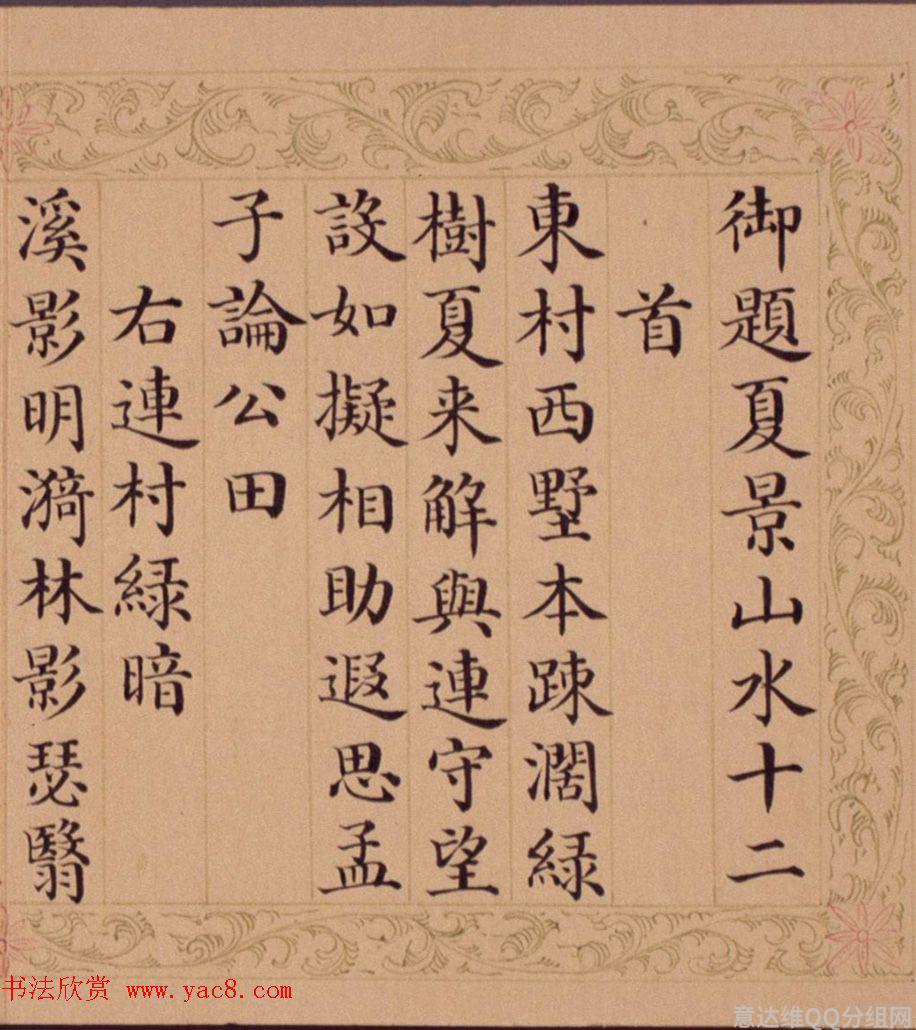 御題夏景山水十二
首
東村西墅本踈濶綠
樹夏来解與連守望
設如擬相助遐思孟
子論公田
右連村綠暗
溪影明漪林影瑟翳
书法欣赏 www.yac8.com
意达维QQ分组网